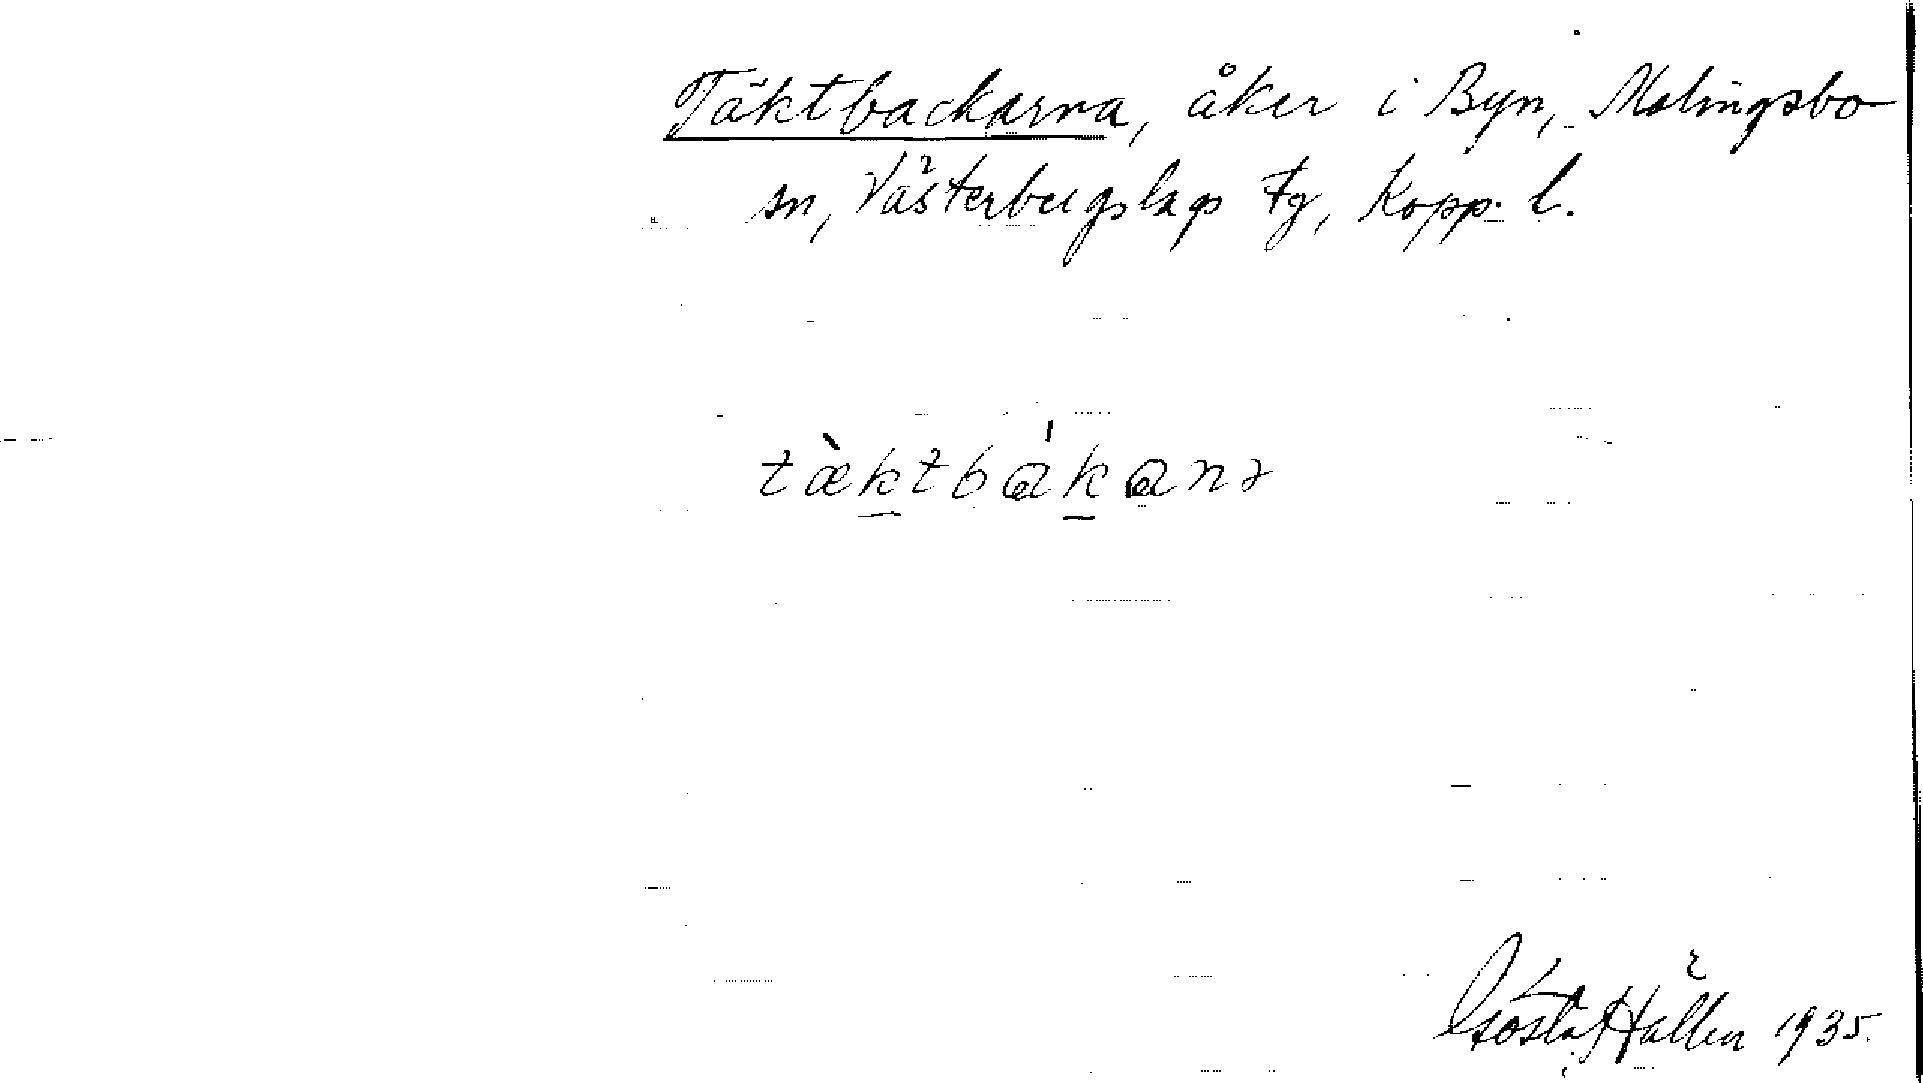 Täktbackarna, åker i Byn, Malingsbo
sn, Västerbergslags Fg, Kopp. l.
tæ̀ktbákanɿ
Gösta Hällen 1935.